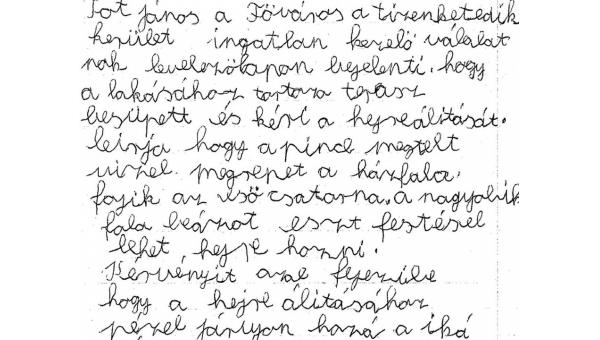 Tot János a Főváros a tizenketedik
kerület ingatlan kezelő válalat
nak levelezőlapon bejelenti, hogy
a lakásához tartozo terasz
besüpett és kéri a hejreálitását.
leirja hogy a pince megtelt
vizzel. megrepet a házfala,
fojik az eső csatorna, a nagyobik
fala beázot eszt festésel
lehet hejre hozni.
Kérvényit azal fejezi be
hogy a hejre álitásához
pézel járuljon hozá a iká